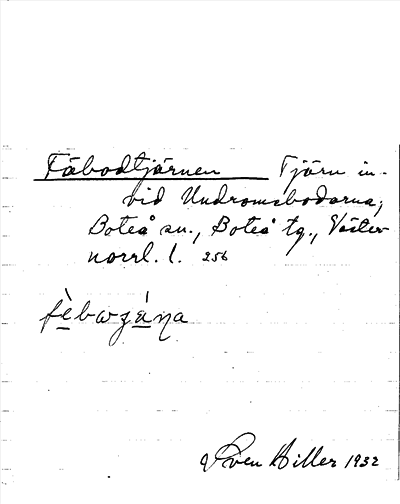 Fäbodtjärnen Tjärn in-
vid Undromsbodarna,
Boteå sn., Boteå tg., Väster-
norrl. l. 256
fèbωʒáṇa
Sven Hiller 1932